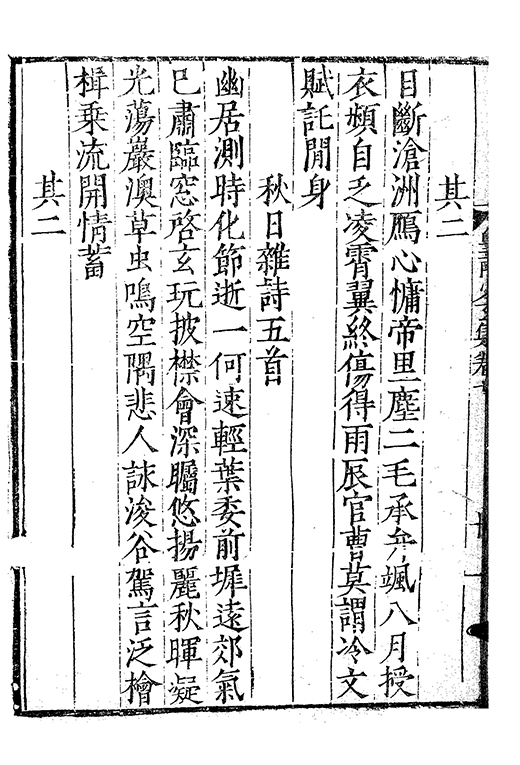 其二
目斷滄洲鴈心慵帝里塵二毛承弁颯八月授
衣頻自乏凌霄翼終傷得雨辰官曹莫謂冷文
賦託閒身
秋日雜詩五首
幽居測時化節逝一何速輕葉委前墀遠郊氣
已肅臨窓啓玄玩披襟會深矚悠揚麗秋暉凝
光蕩巖澳草虫鳴空隅悲人詠浚谷駕言泛檜
楫乗流開情蓄
其二